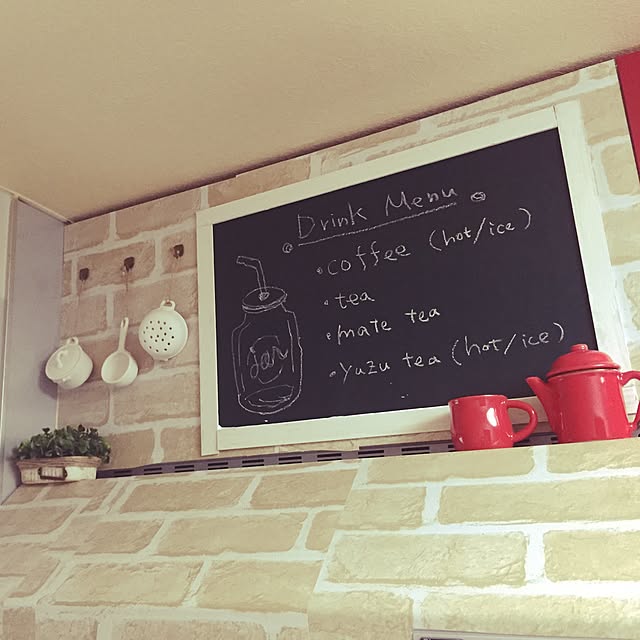 Drink Menu
coffee (hot/ice)
tea
mate tea
yuzu tea (hot/ice)
Jar